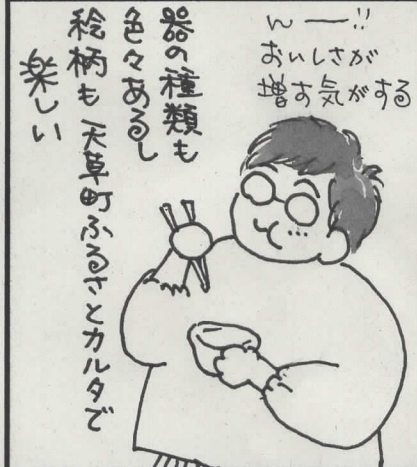 んー!!
おいしさが
増す気がする
器の種類も
色々あるし
絵柄も天草町ふるさとカルタで
楽しい